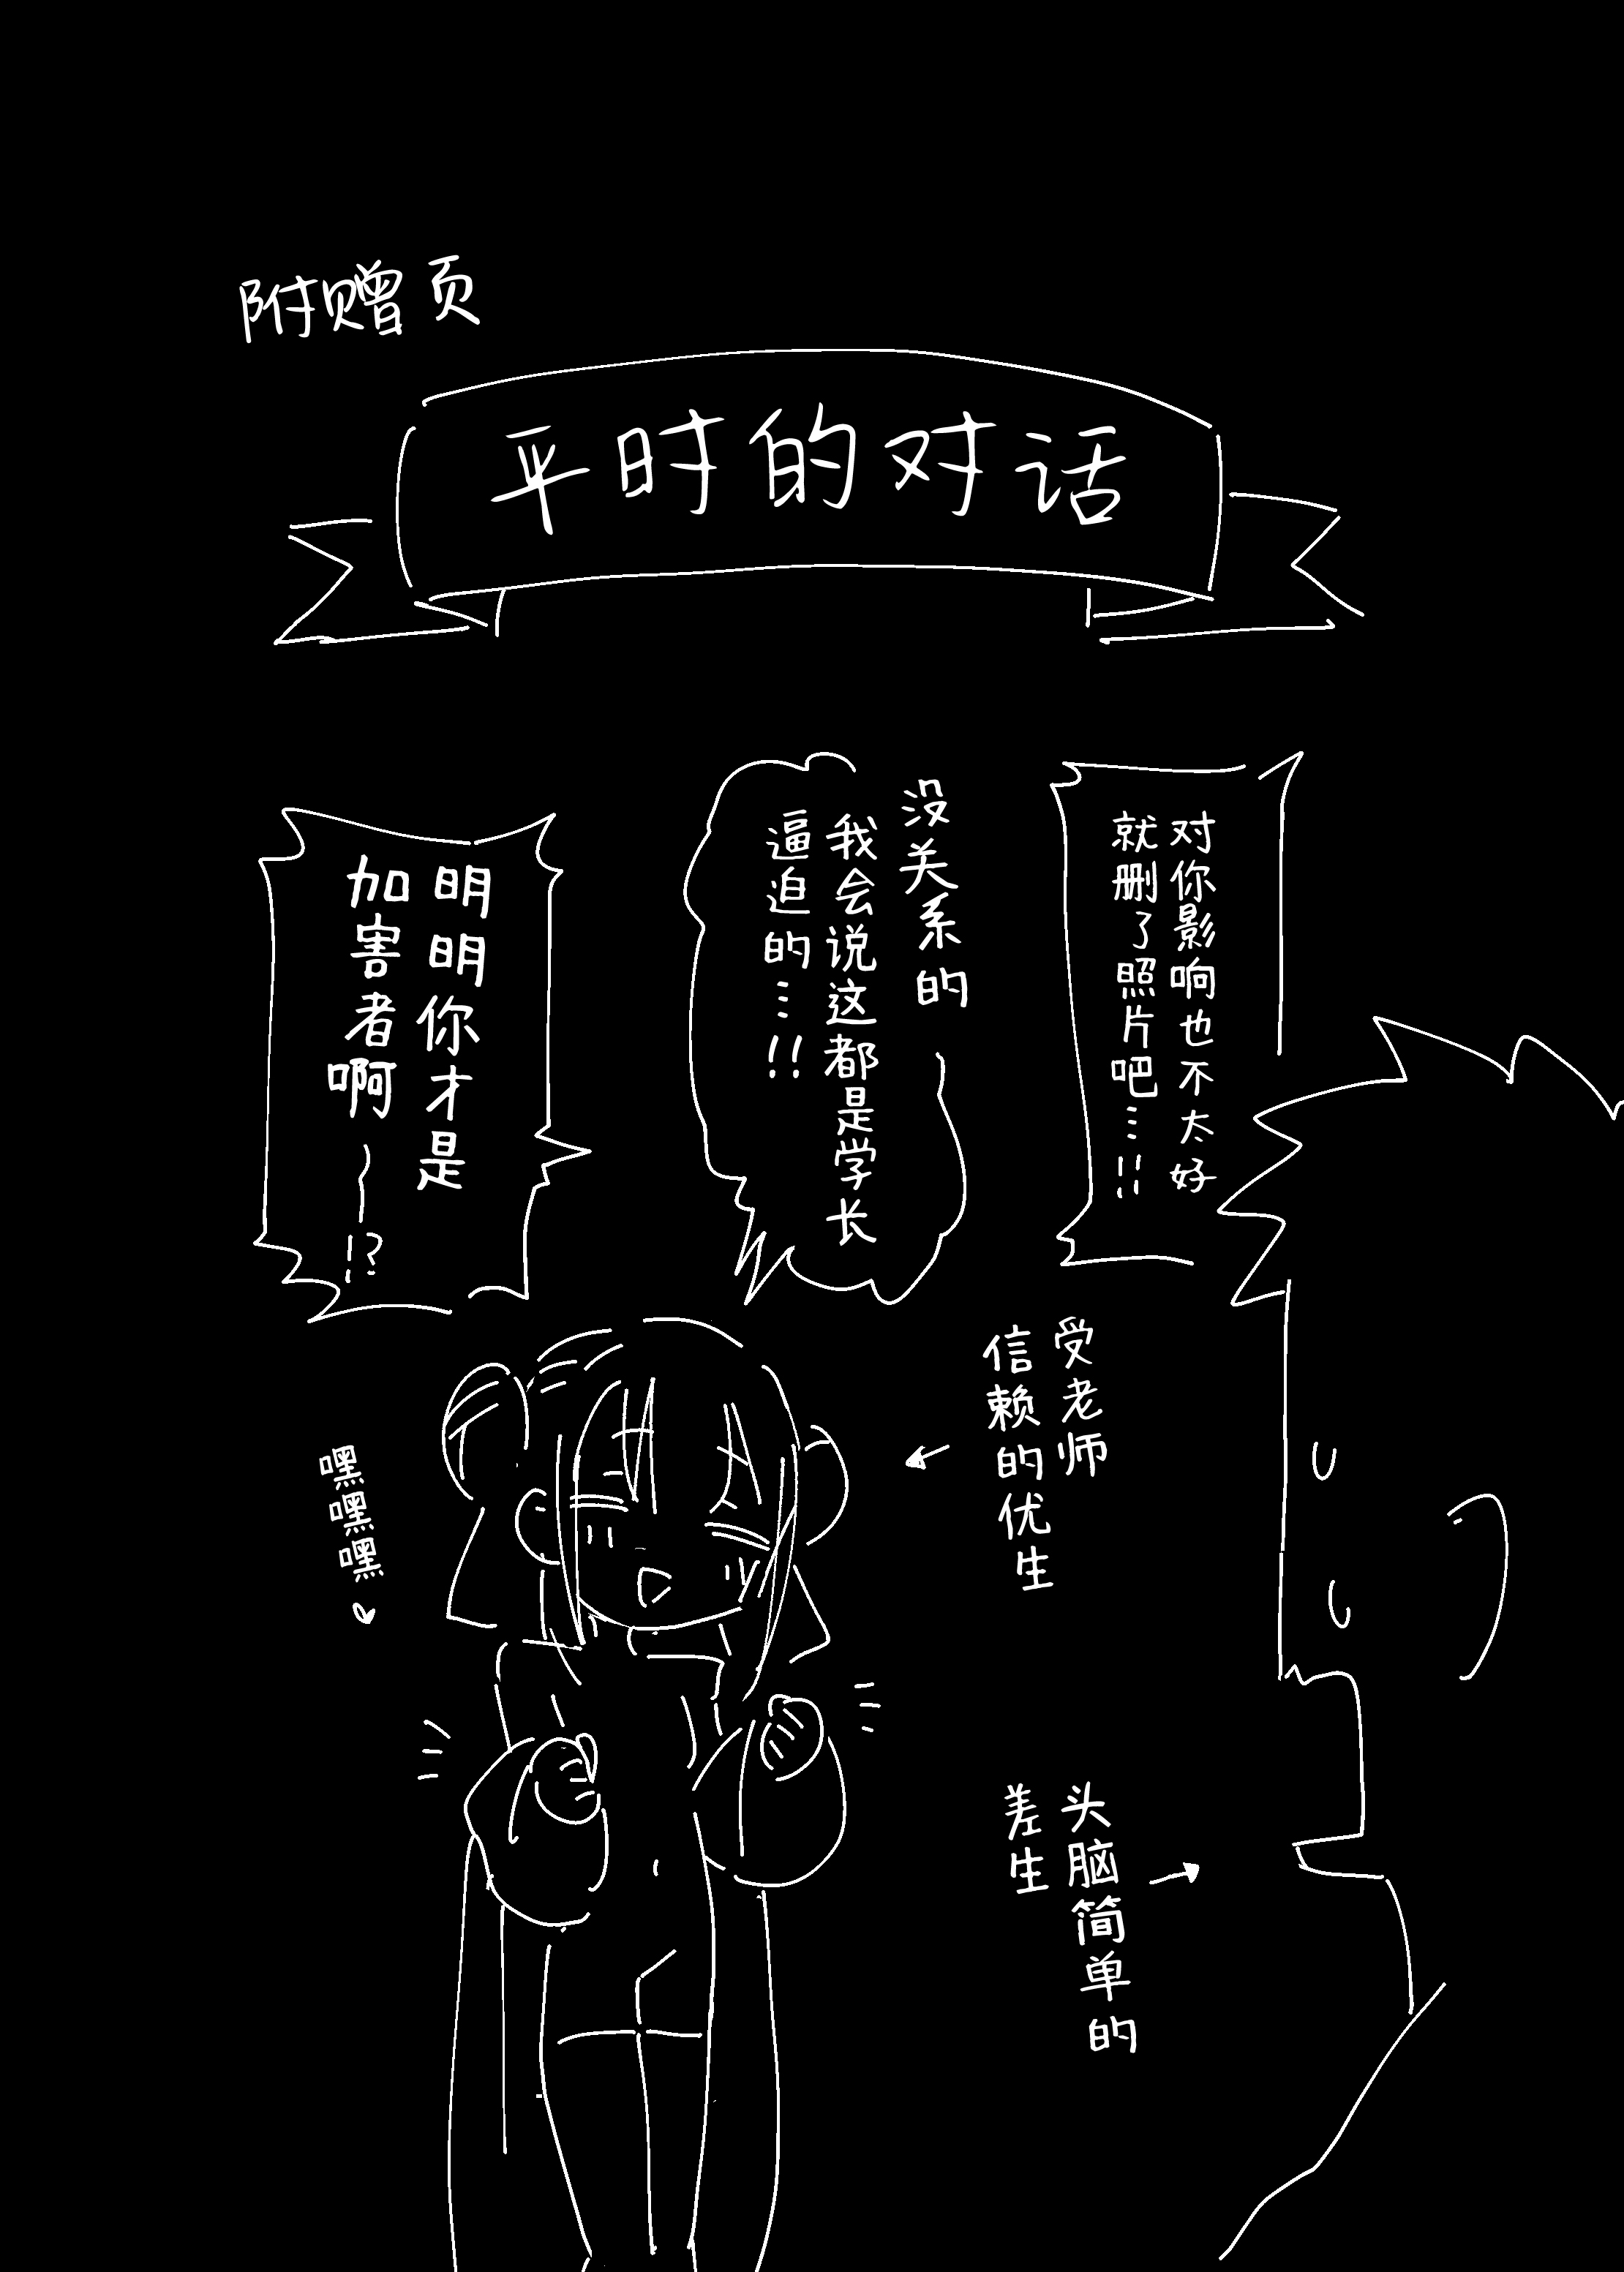 附赠页
平时的对话
对你影响也不太好
就删了照片吧…!!
没关系的
我会说这都是学长
逼迫的…!!
明明你才是
加害者啊～!?
受老师
信赖的优生
嘿嘿嘿♥
头脑简单的
差生